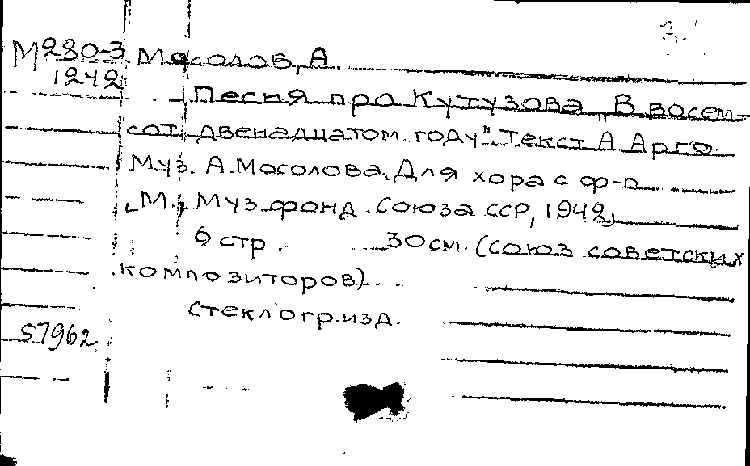 М280-3 Мосолов, А.
1242
Песня про Кутузова „В восем-
сот двенадцатом году". Текст А. Арго.
Муз. А. Мосолова. Для хора с ф-п.
М., Муз. фонд. Союза ССР, 1942
6 стр. 30 см. (Союз советских
композиторов).
Стеклогр. изд.
57962